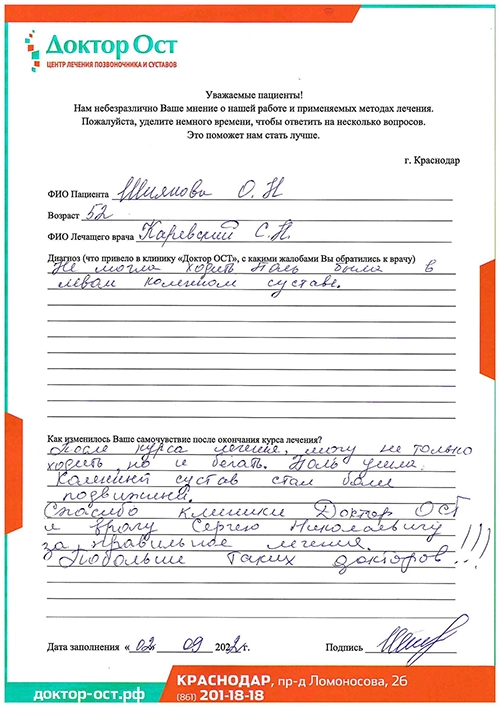 Доктор Ост
ЦЕНТР ЛЕЧЕНИЯ ПОЗВОНОЧНИКА И СУСТАВОВ
Уважаемые пациенты!
Нам небезразлично Ваше мнение о нашей работе и применяемых методах лечения.
Пожалуйста, уделите немного времени, чтобы ответить на несколько вопросов.
Это поможет нам стать лучше.
г. Краснодар
ФИО Пациента Шиянова О.Н
Возраст 52
ФИО Лечащего врача Каревский С.Н.
Диагноз (что привело в клинику «Доктор ОСТ», с какими жалобами Вы обратились к врачу)
Не могла ходить боль была в
левом коленном суставе.
Как изменилось Ваше самочувствие после окончания курса лечения?
После курса лечения, могу не только
ходить, но и бегать. Боль ушла.
Коленный сустав стал более
подвижный.
Спасибо клинике Доктор ОСТ
и врачу Сергею Николаевичу
за правильное лечение.
Побольше таких докторов!!!
Дата заполнения «02» 09 2022г.
Подпись
КРАСНОДАР, пр-д Ломоносова, 26
доктор-ост.рф
(861) 201-18-18